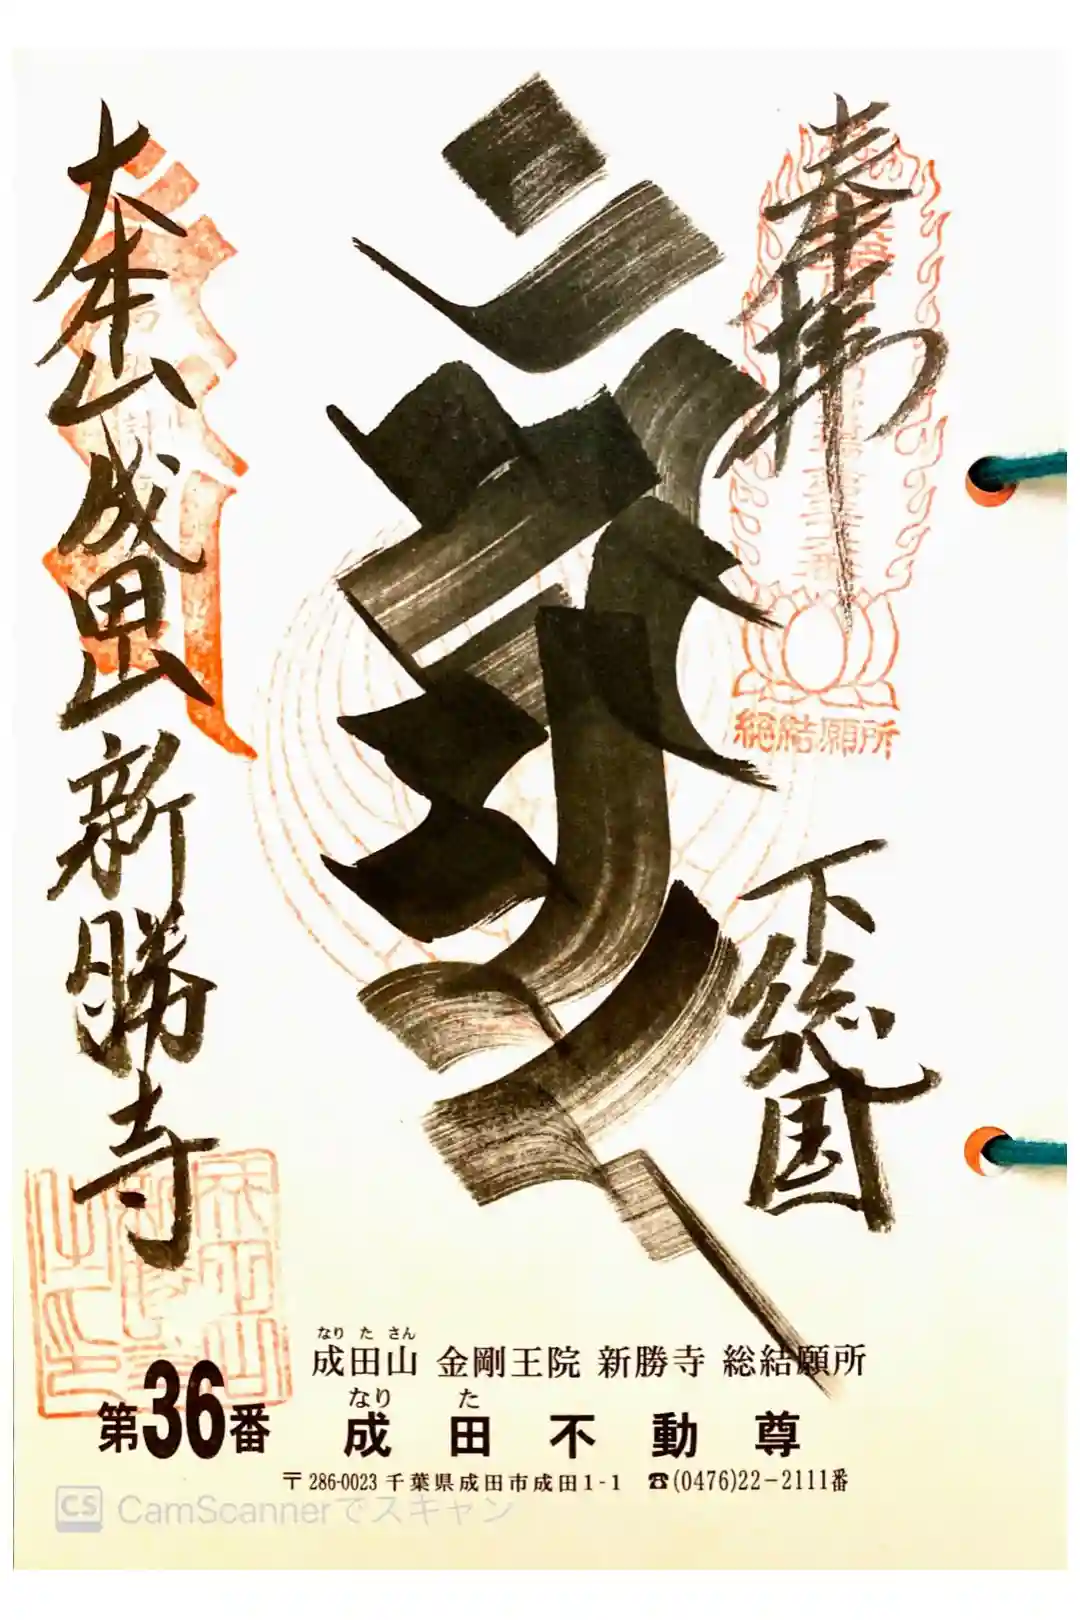 奉拝
下総国
大本山成田山新勝寺
総結願所
なり た さん
成田山 金剛王院 新勝寺 総結願所
第36番
なり た
成田不動尊
〒286-0023 千葉県成田市成田1-1 ☎(0476)22-2111番
CS CamScannerでスキャン